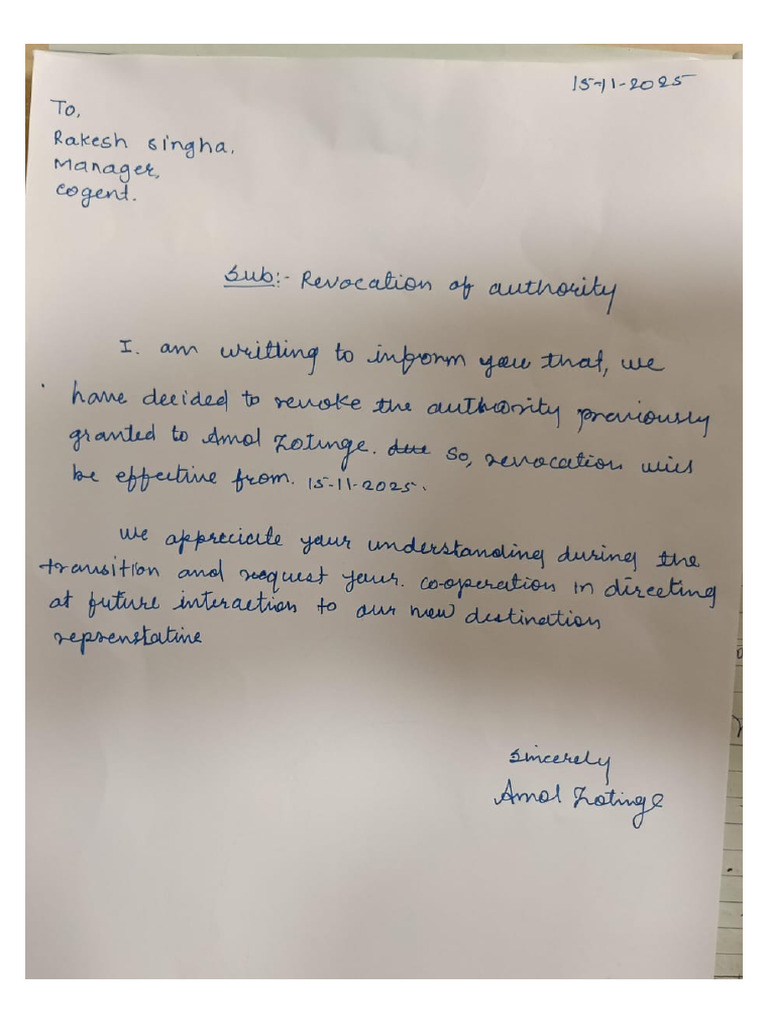 15-11-2025
To,
Rakesh Singha,
Manager,
cogent.
Sub:- Revocation of authority
I. am writting to inform you that, we
have decided to revoke the authority previously
granted to Amol Zotinge. due so, revocation will
be effective from. 15-11-2025.
We appreciate your understanding during the
transition and request your. co-operation in directing
at future interaction to our new destination
reprenstative
Sincerely
Amol Zotinge